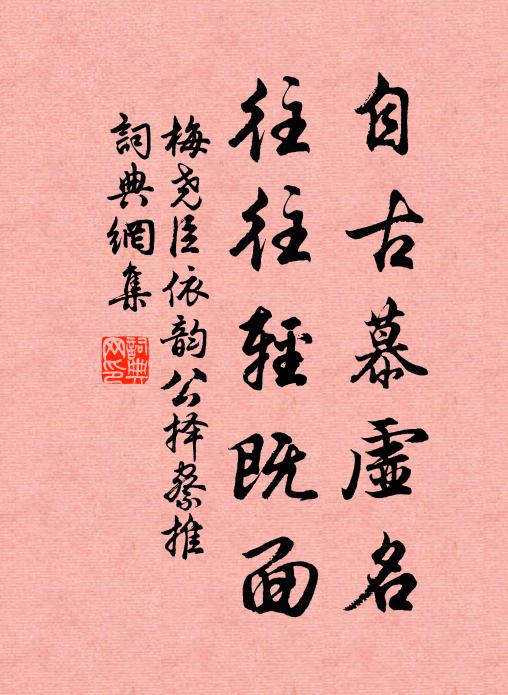 自古慕虛名
往往輕既面
梅尧臣依韵公择察推
詞典網集
詞典網印